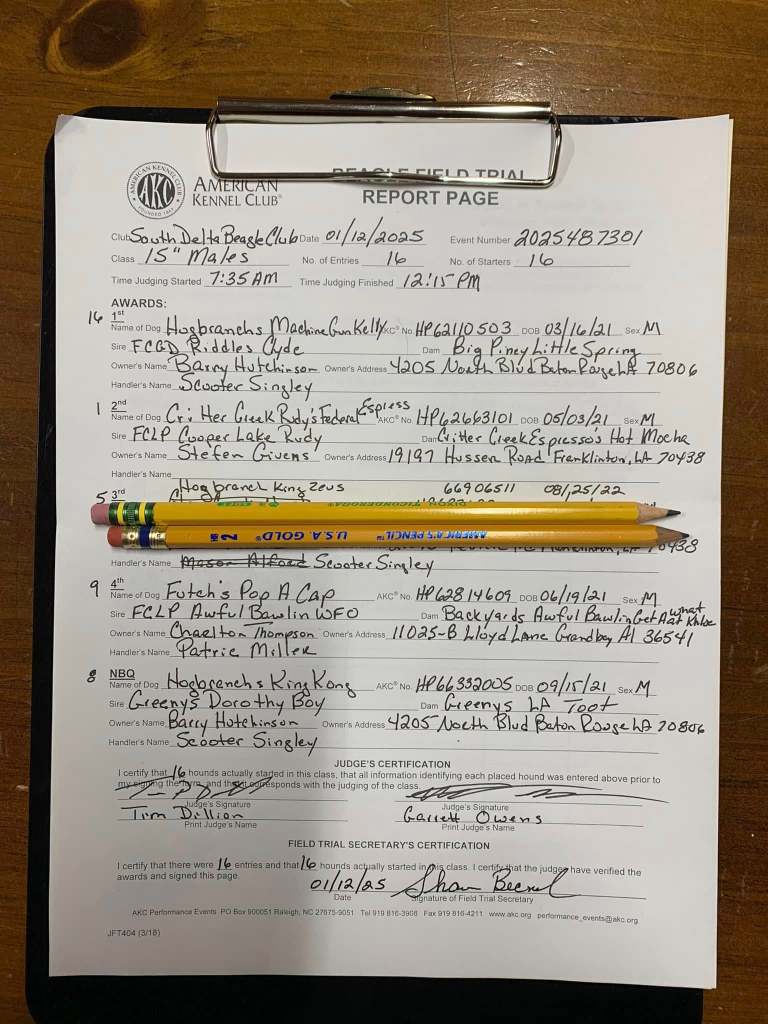 AMERICAN KENNEL CLUB FOUNDED 1884
AKC
AMERICAN
KENNEL CLUB®
BEAGLE FIELD TRIAL
REPORT PAGE
Club South Delta Beagle Club Date 01/12/2025 Event Number 2025487301
Class 15" Males No. of Entries 16 No. of Starters 16
Time Judging Started 7:35 AM Time Judging Finished 12:15 PM
AWARDS:
16 1st
Name of Dog Hogbranchs MachineGunKelly AKC® No. HP62110503 DOB 03/16/21 Sex M
Sire FCGD Riddles Clyde Dam Big Piney Little Spring
Owner's Name Barry Hutchinson Owner's Address 4205 North Blvd Baton Rouge LA 70806
Handler's Name Scooter Singley
1 2nd
Name of Dog Critter Creek Rudy's Federal Espress AKC® No. HP62663101 DOB 05/03/21 Sex M
Sire FCLP Cooper Lake Rudy Dam Critter Creek Espresso's Hot Mocha
Owner's Name Stefen Givens Owner's Address 19197 Hussen Road Franklinton, LA 70438
Handler's Name
Hogbranch King Zeus 66906511 08/25/22
5 3rd
DIXON TICONDEROGA
AMERICA'S PENCIL™ U.S.A. GOLD® 2
70438
Handler's Name Mason Alford Scooter Singley
9 4th
Name of Dog Futch's Pop A Cap AKC® No. HP62814609 DOB 06/19/21 Sex M
Sire FCLP Awful Bawlin WFO Dam Backyards Awful Bawlin Get A what
Owner's Name Charlton Thompson Owner's Address 11025-B Lloyd Lane Grandbay Al 36541
Handler's Name Patric Miller
8 NBQ
Name of Dog Hogbranchs King Kong AKC® No. HP66332005 DOB 09/15/21 Sex M
Sire Greenys Dorothy Boy Dam Greenys LA Toot
Owner's Name Barry Hutchinson Owner's Address 4205 North Blvd Baton Rouge LA 70806
Handler's Name Scooter Singley
JUDGE'S CERTIFICATION
I certify that 16 hounds actually started in this class, that all information identifying each placed hound was entered above prior to
my signing the form, and that it corresponds with the judging of the class.
Judge's Signature Judge's Signature
Tim Dillion Garrett Owens
Print Judge's Name Print Judge's Name
FIELD TRIAL SECRETARY'S CERTIFICATION
I certify that there were 16 entries and that 16 hounds actually started in this class. I certify that the judges have verified the
awards and signed this page.
01/12/25 Shaun Becnel
Date Signature of Field Trial Secretary
AKC Performance Events PO Box 900051 Raleigh, NC 27675-9051 Tel 919 816-3908 Fax 919 816-4211 www.akc.org performance_events@akc.org
JFT404 (3/18)